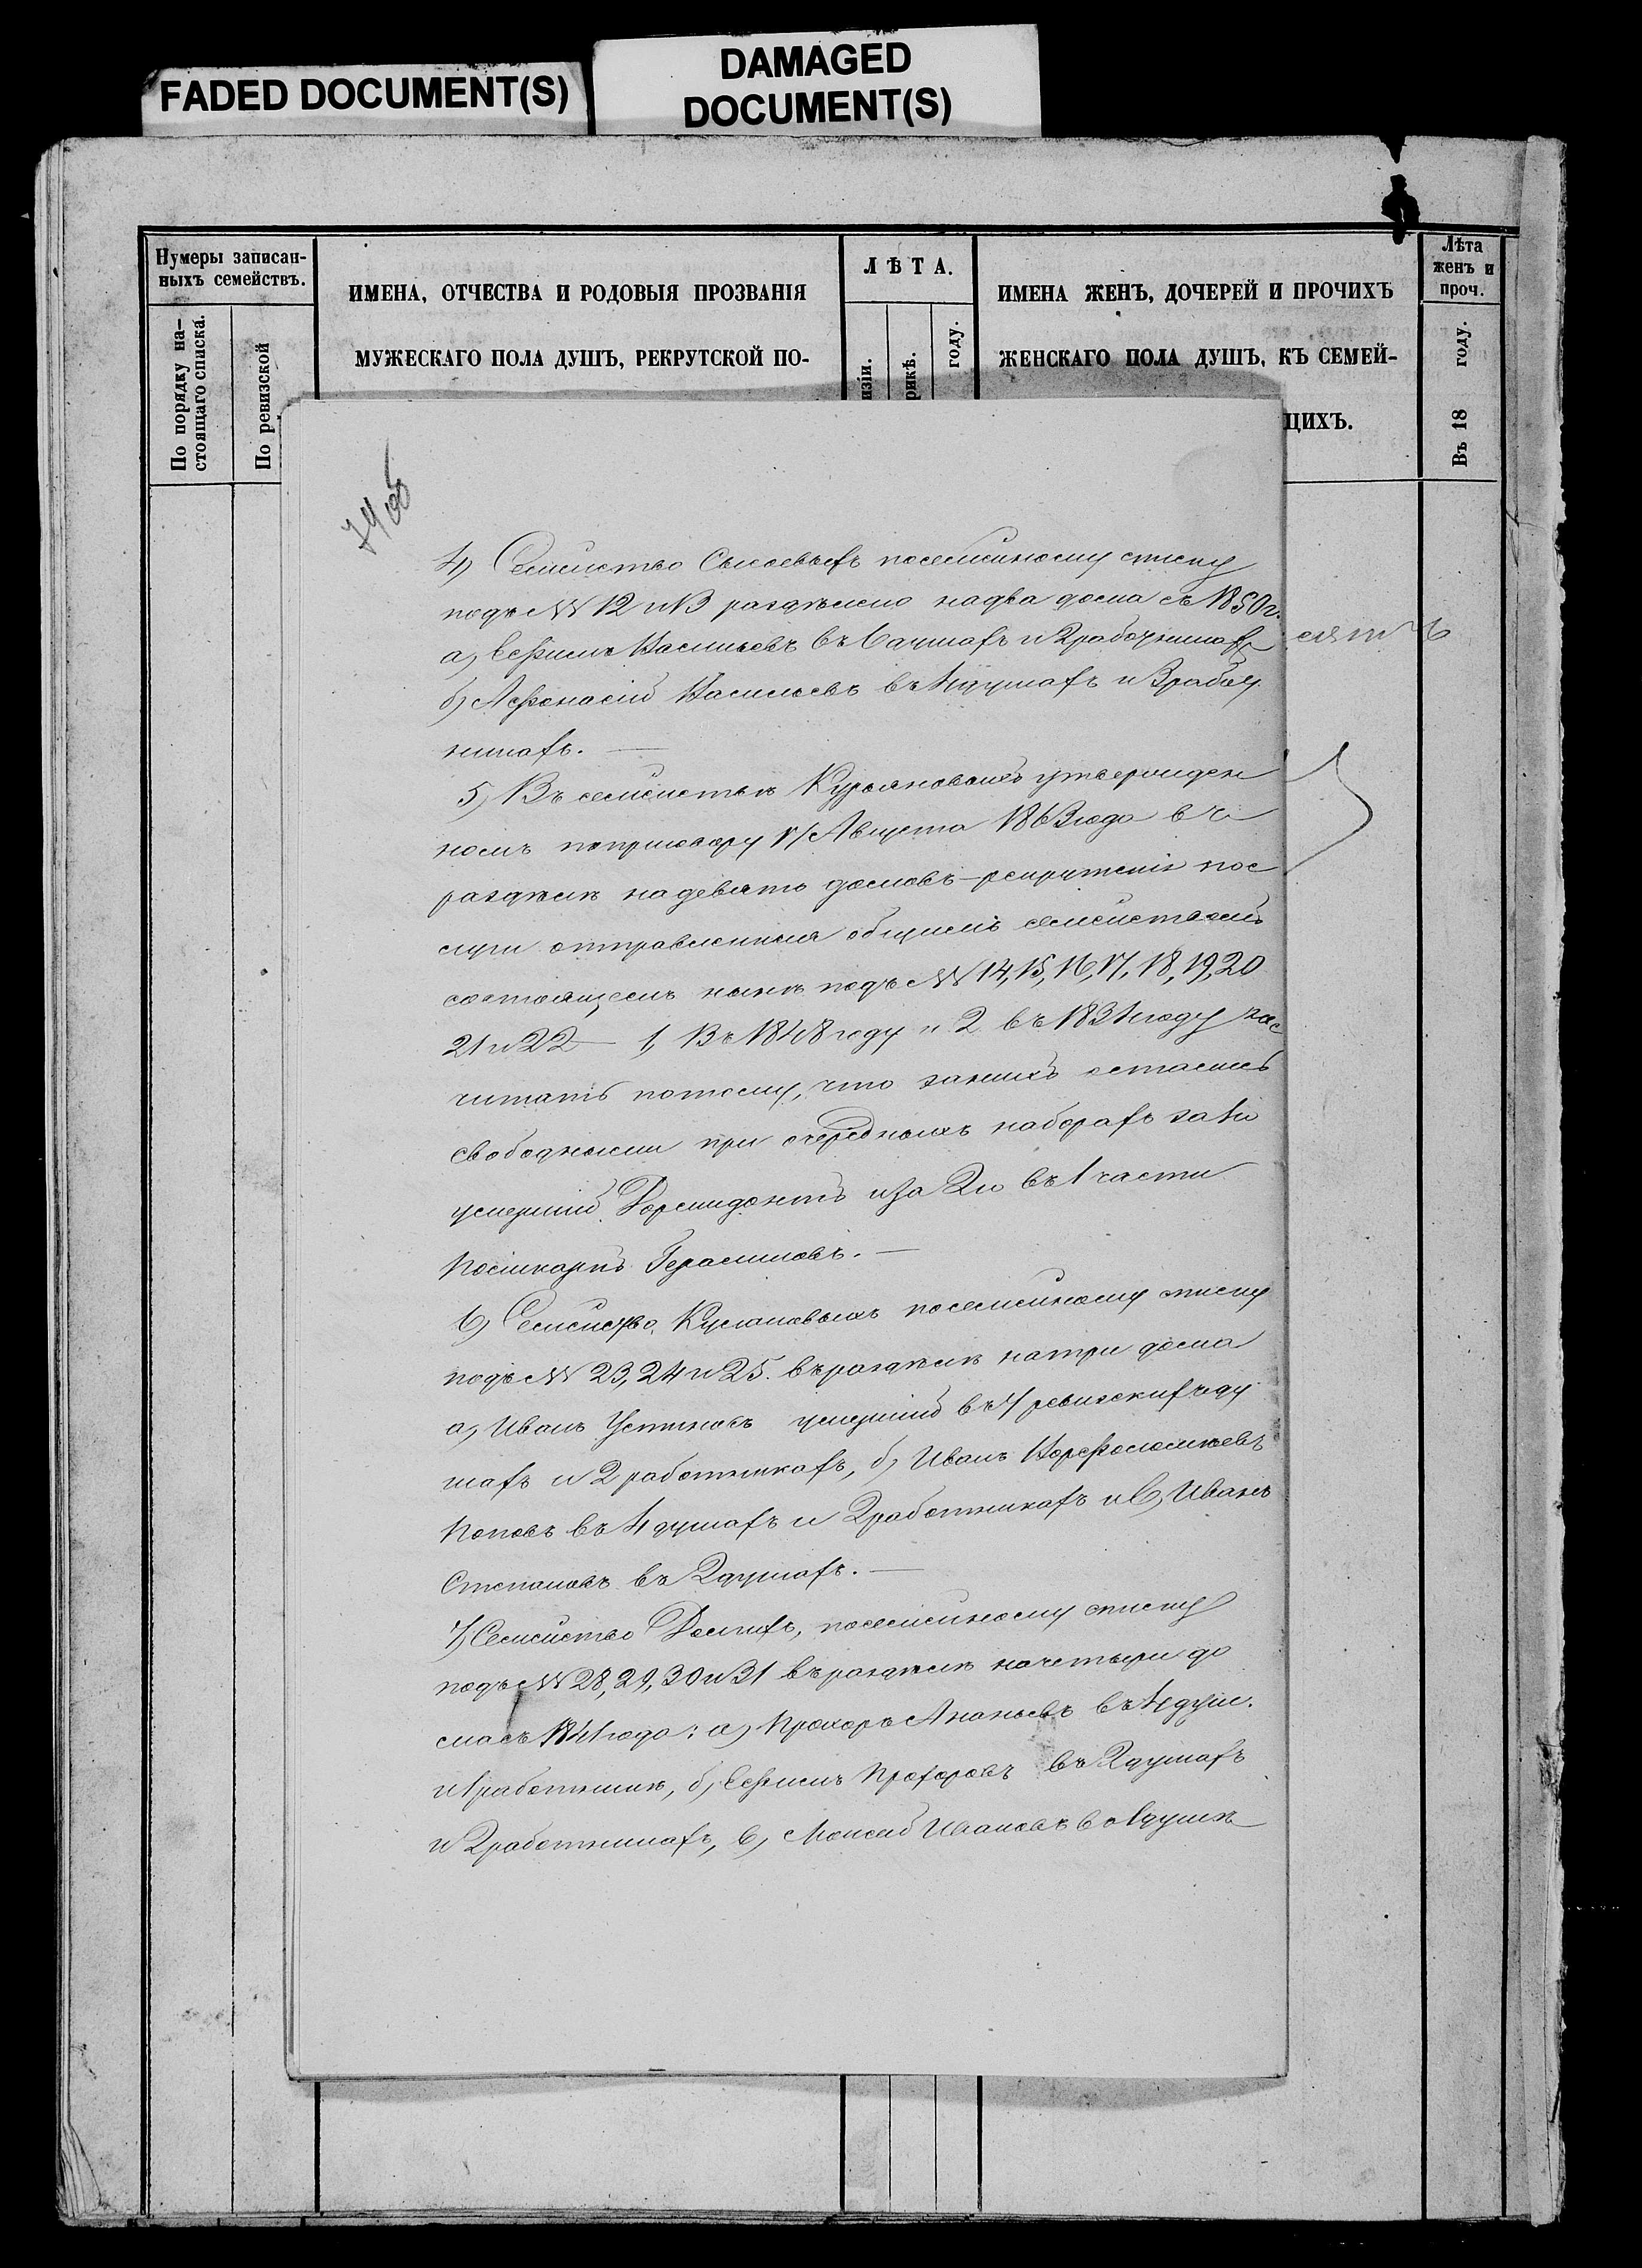 FADED DOCUMENT(S)
DAMAGED
DOCUMENT(S)
Нумеры записан-
ныхъ семействъ.
По порядку на-
стоящаго списка.
По ревизской
ИМЕНА, ОТЧЕСТВА И РОДОВЫЯ ПРОЗВАНІЯ
МУЖЕСКАГО ПОЛА ДУШЪ, РЕКРУТСКОЙ ПО-
ЛѢТА.
изіи.
рикѣ.
году.
ИМЕНА ЖЕНЪ, ДОЧЕРЕЙ И ПРОЧИХЪ
ЖЕНСКАГО ПОЛА ДУШЪ, КЪ СЕМЕЙ-
ЩИХЪ.
Лѣта
женъ и
проч.
Въ 18 году.
74 об
4) Семейство Сысоевыхъ посемейному списку
подъ №№ 12 и 13 раздѣлено на два дома съ 1850 г.
а) Ефимъ Васильевъ въ 6 душахъ и 2 работникахъ
б) Афонасій Васильевъ въ 4 душахъ и 3 работ
никахъ. —
5) Въ семействѣ утвержден
номъ по приговору 17 Августа 1863 года въ
раздѣлѣ на девять домовъ – рекрутскія нос
отправленныя общимъ семействомъ
состоящемъ нынѣ подъ №№ 14, 15, 16, 17, 18, 19, 20
21 и 22 — 1, Въ 1848 году и 2 въ 1834 году зас
читать потому, что за нихъ остались
свободными при очередныхъ наборахъ за 1ю
умершій Дормидонтъ и за 2ю въ 1 части
Поликарпъ Герасимовъ. —
6) Семейство посемейному списку
подъ №№ 23, 24 и 25. въ раздѣлѣ на три дома
а, Иванъ Устиновъ умершій въ 7 ревизскихъ ду
шахъ и 2 работникахъ, б, Иванъ
Поповъ въ 4 душахъ и 2 работникахъ и в, Иванъ
Степановъ въ 2 душахъ. —
7) Семейство Долгихъ, посемейному списку
подъ №№ 28, 29, 30 и 31 въ раздѣлѣ на четыре до
ма съ 1841 года: а) Прохоръ Ананьевъ въ 4 душ.
и 1 работникѣ, б, Ефимъ Прохоровъ въ 2 душахъ
и 2 работникахъ, в, Моисей Ивановъ въ 1 душѣ